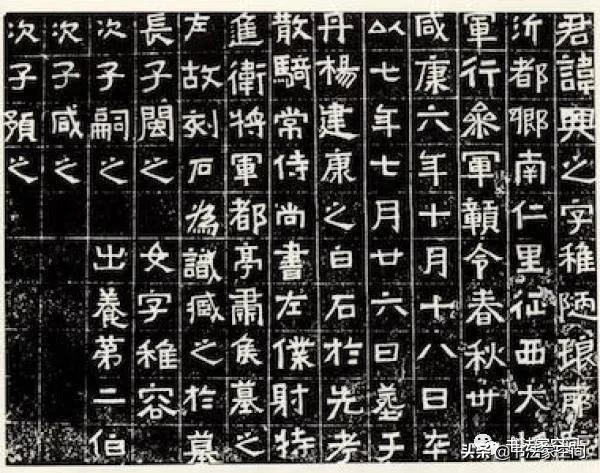 君諱興之字稚陋琅耶
沂都鄉南仁里征西大
軍行參軍贛令春秋卅
咸康六年十月十八日卒
以七年七月廿六日葬于
丹楊建康之白石於先考
散騎常侍尚書左僕射特
進衛將軍都亭肅侯墓之
左故刻石為識臧之於墓
長子閩之 女字稚容
次子嗣之 出養第二伯
次子咸之
次子預之
书法家空间